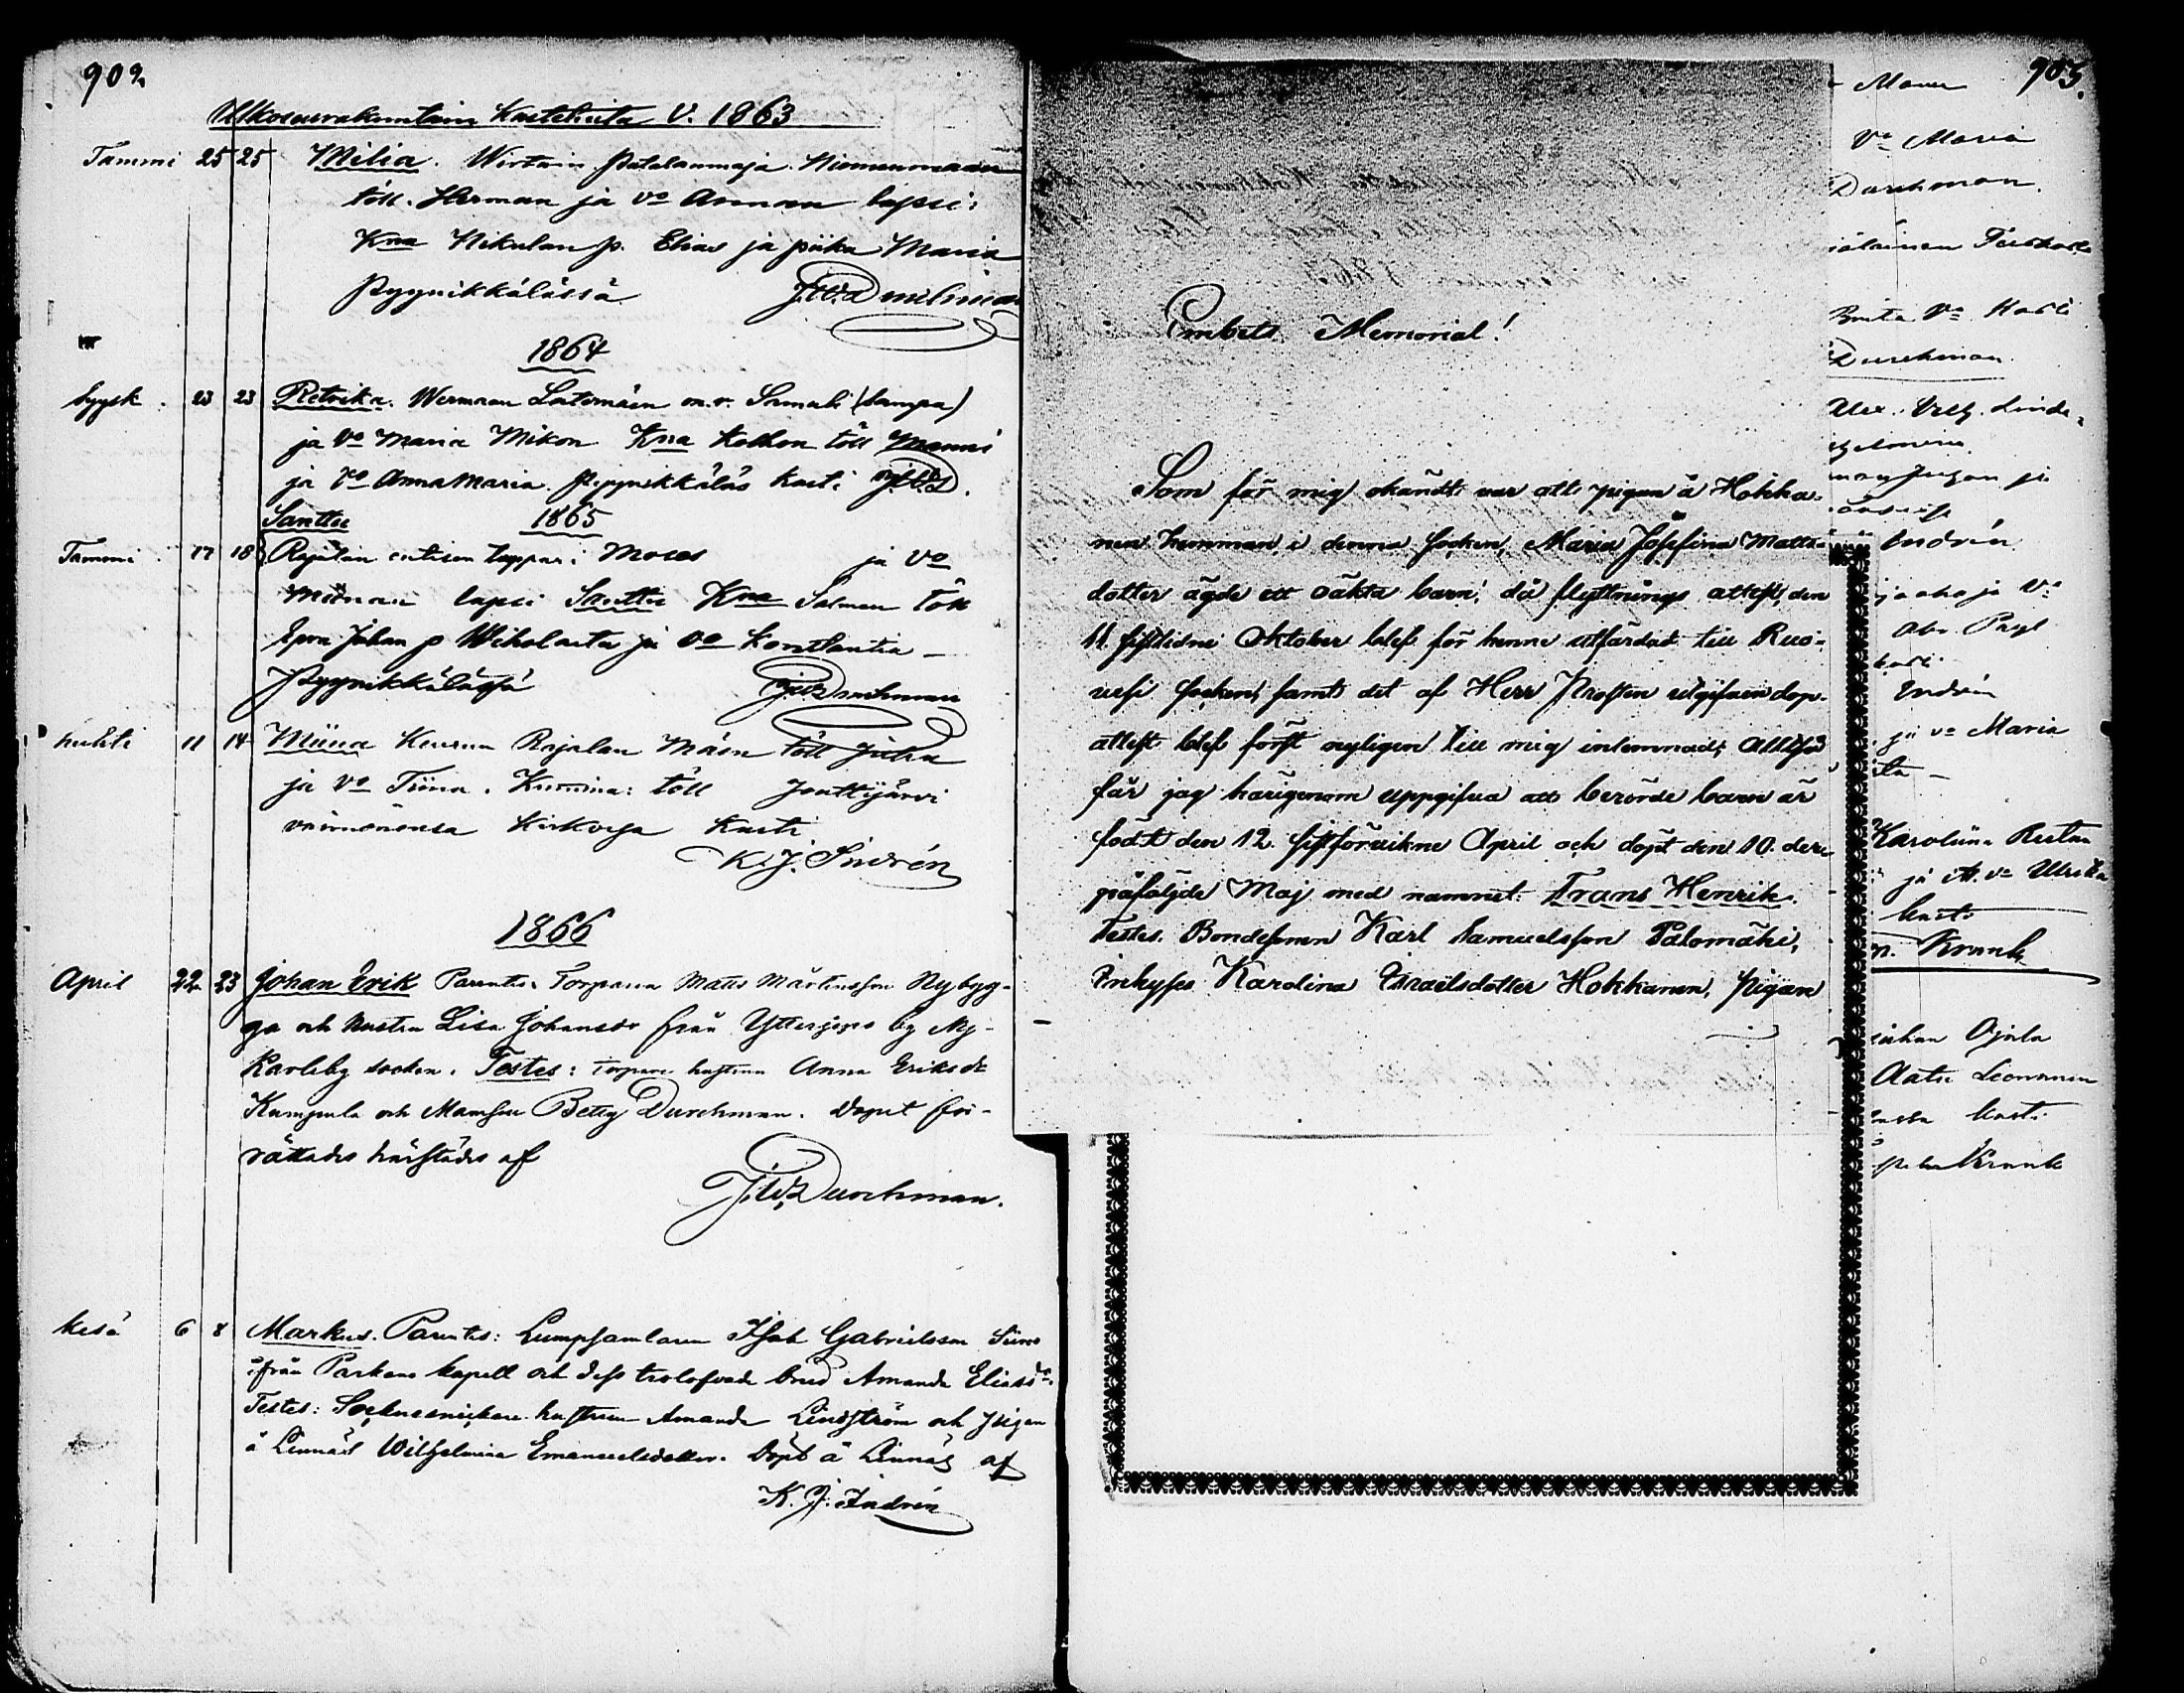 902
Ulkoseurakuntain Kastetuita V. 1863
Tammi 25 25 Milia. Wirtain Patalaumaja. Niemenmaan
töll. Herman ja vo Annan lapsi.
Kna Nikulan p. Elias ja piika Maria
Pyynikkälässä J.W. Durchman
1864
Syysk. 23 23 Retrika. Wermaan Latomäen m.v. Samuli (Sampa)
ja Vo Maria Mikon Kna Kolkon töll Manni
ja Vo Anna Maria. Pyynikkäläs Kasti J.W.D.
Santtu 1865
Tammi 17 18 Rajalan entisen lappari Moses ja Vo
Miinan lapsi Santtu Kna Salmen töll
Epra Johan p Wiholasta ja vo Konstantia
Pyynikkälässä J.W. Durchman
huhti 11 14 Miina Keurun Rajalan Mäen töll Juha
ja Vo Tiina. Kummina: töll Jouttijärvi
vaimonensa Kirkossa Kasti
K. J. Indrén
1866
April 22 23 Johan Erik Parentes. Torparen Matts Mårtensson Nybyg-
ga och hustru Lisa Johansdr från Ytterjeppo by Ny-
karleby socken. Testes: Torpare hustrun Anna Eriksdr
Kumpula och Mamsell Betsy Durchman. Dopet för-
rättades härstädes af
J.W. Durchman.
kesä 6 8 Markus. Parentes: Lumpsamlaren Isak Gabrielsson
ifrån Parkano kapell och dess trolofvade brud Amanda Eliasdr.
Testes: Sockensnickare hustrun Amanda Lindström och pigan
å Linnäs Wilhelmina Emanuelsdotter. Döpt å Linnäs af
K. J. Indrén
Embets Memorial!
Som för mig okändt var att pigan å Hokka-
nen hemman, i denna socken, Maria Josefina Matts-
dotter ägde ett oäkta barn, då flyttnings attest, den
11 sistlidne Oktober blef för henne utfärdad till Ruo-
vesi socken, samt det af Herr Prosten utgifven dop-
attest blef först nyligen till mig inlemnad; Alltså
får jag härigenom uppgifva att berörde barn är
födt den 12. sistförvikne April och döpt den 10. der-
påföljde Maj med namnet: Frans Henrik.
Testes. Bondesonen Karl Samuelsson Palomäki,
Inhyses Karolina Israelsdotter Hokkanen, Pigan
903.
Vo Maria
Durchman.
Brita Vo Kasti
Durchman.
Alex. Vilh. Linde-
Indrén
Indrén
ja vo Maria
Karoliina
ja A. vo Ulrika
kasti
Krank
Juhan Ojala
Aatu Leonanen
kasti
Krank